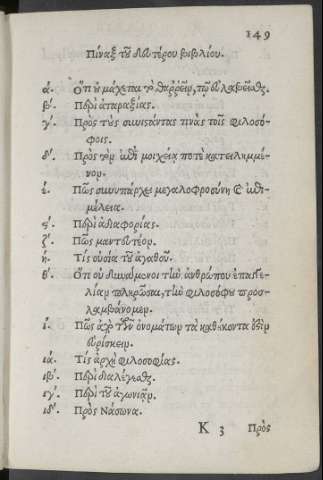 149
Πίναξ τοῦ δευτέρου βιβλίου.
ά. Ὅτι οὐ μάχεται τὸ θαῤῥεῖν, τῷ εὐλαβεῖσθαι.
β΄. Περὶ ἀταραξίας.
γ΄. Πρὸς τοὺς συνιστάντας τινὰς τοῖς φιλοσό-
φοις.
δ΄. Πρὸς τὸν ἐπὶ μοιχείᾳ ποτὲ κατειλημμέ-
νον.
έ. Πῶς συνυπάρχει μεγαλοφροσύνη καὶ ἐπι-
μέλεια.
ς΄. Περὶ ἀδιαφορίας.
ζ΄. Πῶς μαντευτέον.
ή. Τίς οὐσία τοῦ ἀγαθοῦ.
θ΄. Ὅτι οὐ δυνάμενοι τὴν ἀνθρώπου ἐπαγγε-
λίαν πληρῶσαι, τὴν φιλοσόφου προσ-
λαμβάνομεν.
ί. Πῶς ἀπὸ τῶν ὀνομάτων τὰ καθήκοντα ἔστιν
εὑρίσκειν.
ιά. Τίς ἀρχὴ φιλοσοφίας.
ιβ΄. Περὶ διαλέγεσθαι.
ιγ΄. Περὶ τοῦ ἀγωνιᾷν.
ιδ΄. Πρὸς Νάσωνα.
K 3 Πρὸς